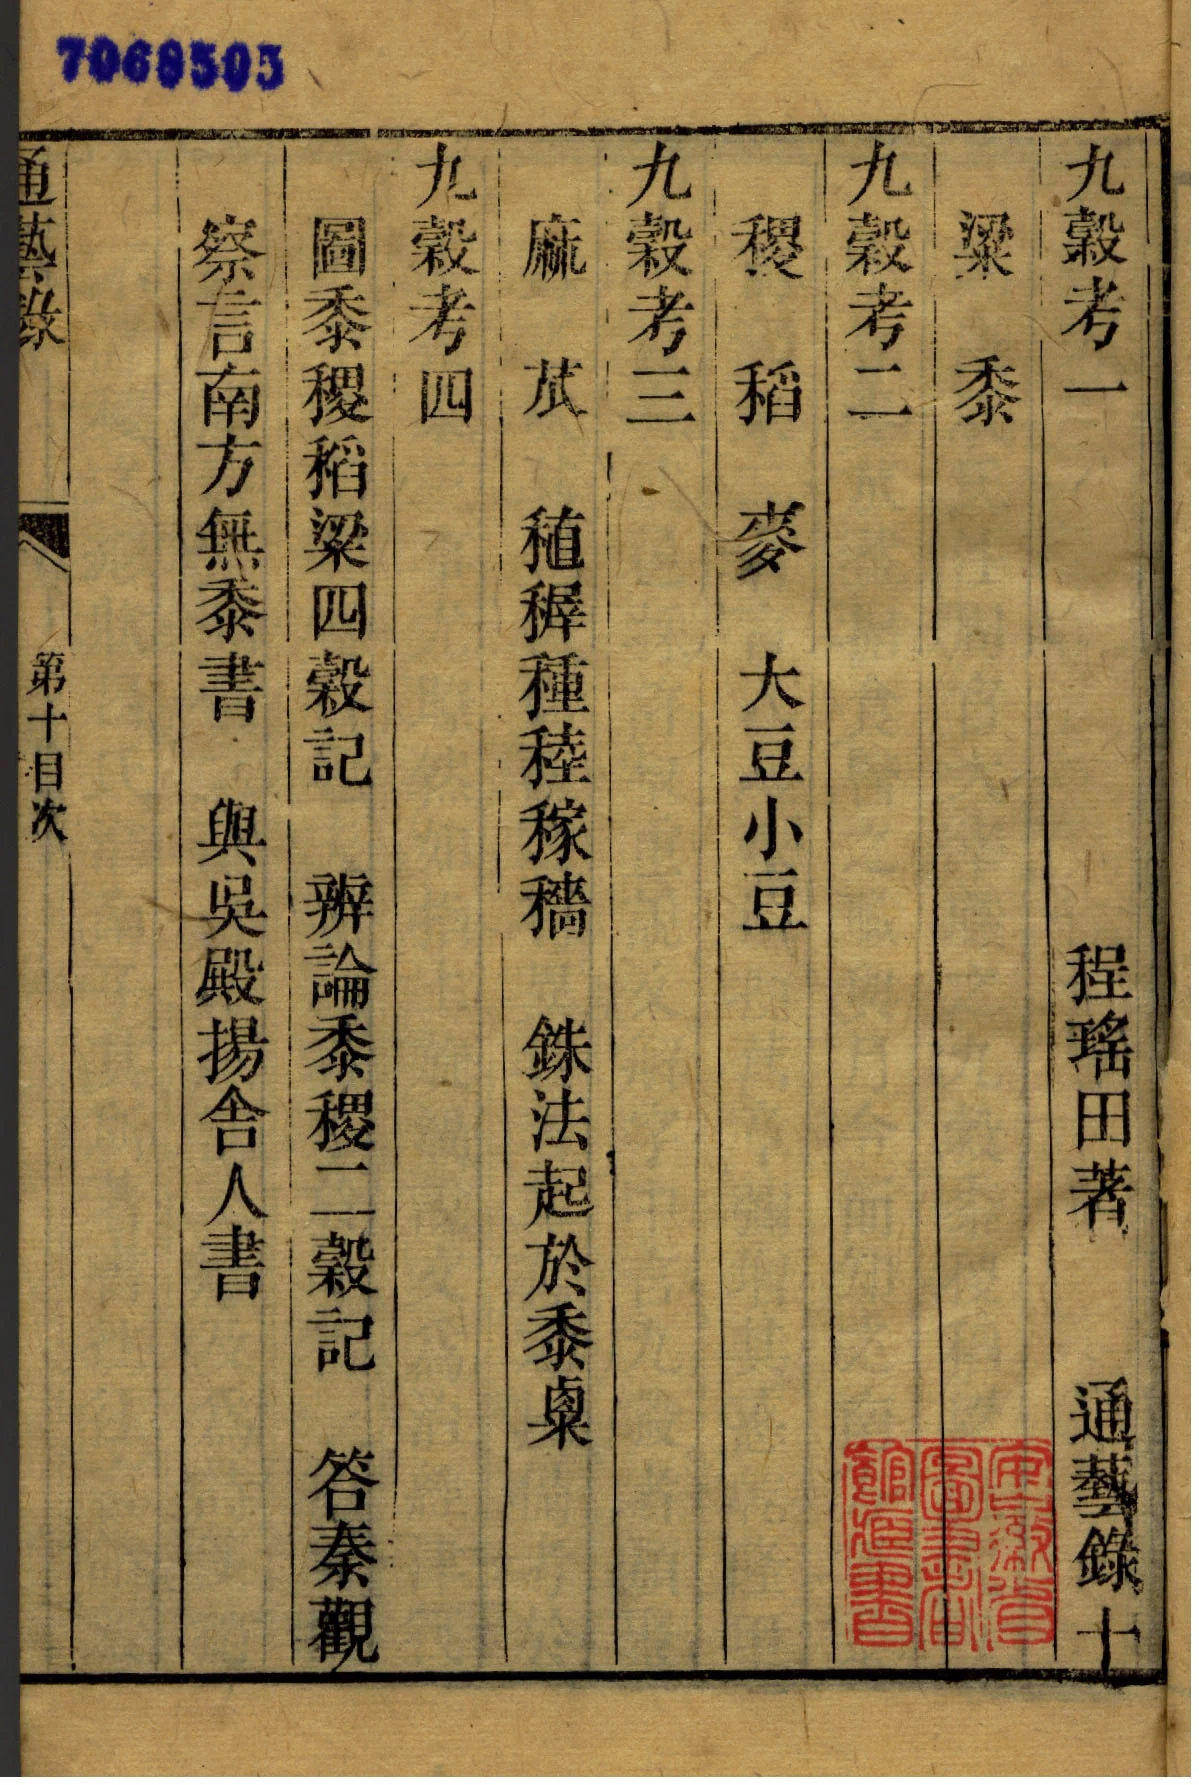 7068503
九穀考一 程瑤田著 通藝錄十
粱 黍
九穀考二
稷 稻 麥 大豆小豆
九穀考三
麻 苽 稙稺種稑稼穡 銖法起於黍㮚
九穀考四
圖黍稷稻粱四穀記 辨論黍稷二穀記 答秦觀
察言南方無黍書 與吳殿揚舍人書
通藝錄
第十目次
安徽省圖書館藏書